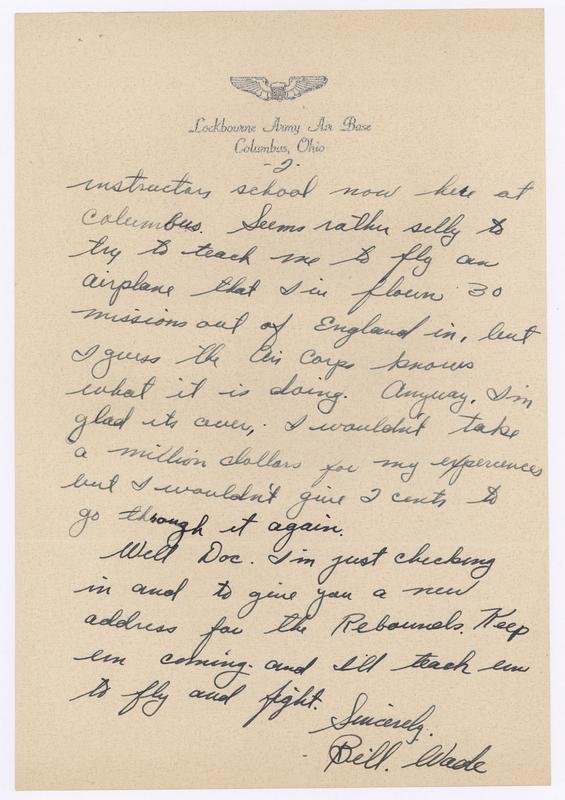 Lockbourne Army Air Base
Columbus, Ohio
-2-
instructors school now here at
Columbus. Seems rather silly to
try to teach me to fly an
airplane that I've flown 30
missions out of England in, but
I guess the Air Corps knows
what it is doing. Anyway, I'm
glad its over, I wouldn't take
a million dollars for my experiences
but I wouldn't give 2 cents to
go through it again.
Well Doc. I'm just checking
in and to give you a new
address for the Rebounds. Keep
em coming and I'll teach em
to fly and fight.
Sincerely,
Bill. Wade